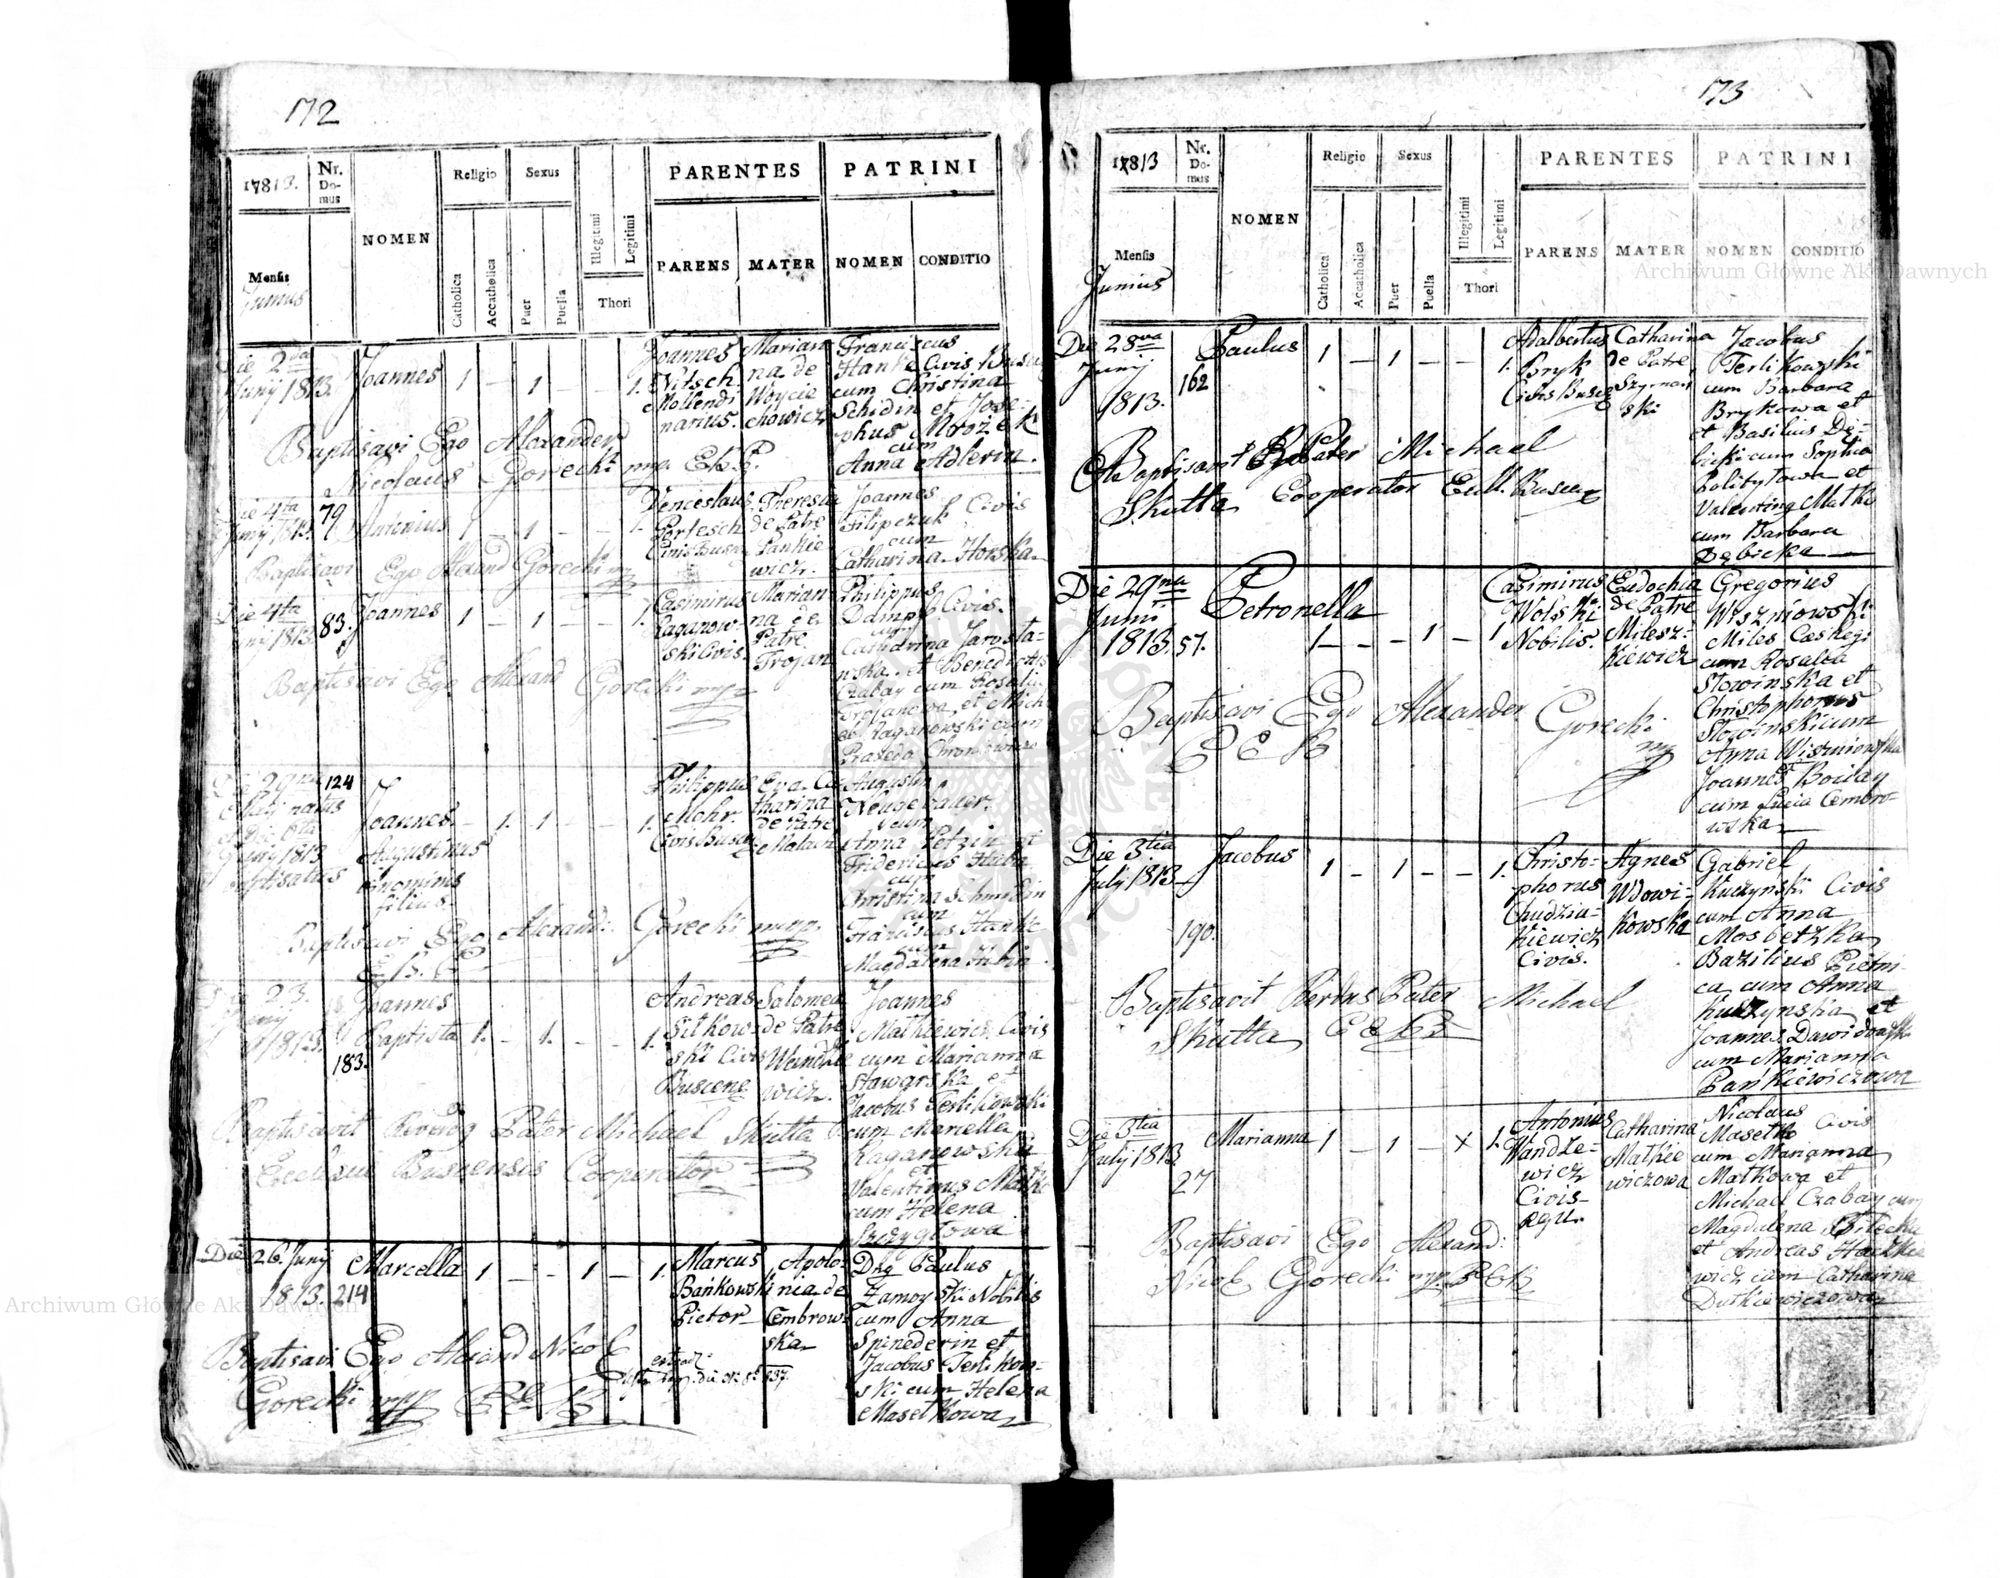 172
17813.
Nr. Domus
NOMEN
Religio
Sexus
Catholica
Accatholica
Puer
Puella
Illegitimi
Legitimi
Thori
PARENTES
PATRINI
PARENS
MATER
NOMEN
CONDITIO
Mensis
Junius
Die 2da
Juny 1813.
Joannes
1 – 1 – – 1.
Joannes
Nitsch
Mollendi
narius.
Marian
na de
Woycie
chowicz
Franciscus
Hanke Civis Busc
cum Christina
Schidin et Jose-
phus Mrozek
cum
Anna Adlerin.
Baptisavi Ego Alexander
Nicolaus Gorecki mp. E. B.
Die 4ta
Juny 1813.
79
Antonius
1 1 1.
Venceslaus
Pertesch
Civis Busc.
Theresia
de Patre
Pankie
wicz.
Joannes
Filipczuk Civis
cum
Catharina Horska
Baptisavi Ego Alexand Gorecki mp
Die 4ta
Juny 1813
83.
Joannes
1 – 1 – –
Casimirus
Raganow-
ski Civis.
Marian
na de
Patre
Trojan
Philippus
Damps Civis.
cum
Catharina Jarosta-
wska et Benedictus
Czabay cum Rosalia
Trojanowa et Mich
ael Raganowski cum
Praseda
Baptisavi Ego Alexand Gorecki mp
Die 29na
Maji natus
et die 6ta
Juny 1813
baptisatus
124
Joannes
Augustinus
binominis
filius.
– 1. 1 – – 1.
Philippus
Mohr.
Civis Busc.
Eva Ca
tharina
de Patre
Augustin
Neugebauer.
cum
Anna Petzin et
Fridericus
cum
Christina Schmidin
cum
Franciscus Hanke
cum
Magdalena
Baptisavi Ego Alexand: Gorecki mp.
Die 23.
Juny
1813.
183.
Joannes
Baptista
1. – 1. – – 1.
Andreas
Sitkow-
ski Civis
Buscene
Salomea
de Patre
Wandzle
wicz.
Joannes
Mathiewicz Civis
cum Marianna
Stawarska et
Jacobus Terlikowski
cum Mariella
Raganowska
et
Valentinus Matk
cum Helena
Szczyglowa
Baptisavit Reverdg Pater Michael Skutta
Ecclesiae Buscensis Cooperator
Die 26. Juny
1813.
214
Marcella
1 – – 1 – 1.
Marcus
Bańkowski
Pictor
Apolo-
nia de
Cembrow-
ska
Dng Paulus
Zamoyski Nobilis
cum Anna
Spinederin et
Jacobus Terlikow-
ski cum Helena
Masetkowa
Baptisavi Ego Alexand Nicol
Gorecki mp
173
17813
Nr. Domus
NOMEN
Religio
Sexus
Catholica
Accatholica
Puer
Puella
Illegitimi
Legitimi
Thori
PARENTES
PATRINI
PARENS
MATER
NOMEN
CONDITIO
Mensis
Junius
Die 28va
Juny
1813.
162
Paulus
1 – 1 – – 1.
Adalbertus
Bryk
Civis Busc
Catharina
de Patre
Szyman
ski
Jacobus
Terlikowski
cum Barbara
Brykowa et
et Basilius De-
bicki cum Sophia
Politytowa et
Valenting Matk
cum Barbara
Dębicka
Baptisavit Pater Michael
Skutta Cooperator Eccl. Buscen
Die 29na
Juni
1813.
57.
Petronella
1 – – 1 – 1
Casimirus
Wolski
Nobilis.
Eudochia
de Patre
Milesz-
kiewicz
Gregorius
Wiszniowski
Miles Caes Regi
cum Rosalia
Stowinska et
Christophorus
Stowinski cum
Anna Wiszniowska
Joannes Boiday
cum Lucia Cembro-
wska
Baptisavi Ego Alexander Gorecki
mp
Die 3tia
July 1813
190.
Jacobus
1 – 1 – – 1.
Christo-
phorus
Chudziu-
kiewicz
Civis.
Agnes
Wdowi-
kowska
Gabriel
Kuczynski Civis
cum Anna
Mosbetzka
Bazilius Pietni-
ca cum Anna
Kuczynska et
Joannes Dawidowsk
cum Marianna
Pańkiewiczowa
Baptisavit Rerdus Pater Michael
Skutta
Die 3tia
July 1813
27
Marianna
1 – 1 – x 1.
Antonius
Wandzle-
wicz
Civis
Catharina
Mathie
wiczowa
Nicolaus
Masetko Civis
cum Marianna
Matkowa et
Michael Czabay cum
Magdalena Bilecka
et Andreas Haczkie
wicz cum Catharina
Dutkiewiczowa
Baptisavi Ego Alexand:
Nicol Gorecki mp.
Archiwum Główne Akt Dawnych
Archiwum Główne Akt Dawnych